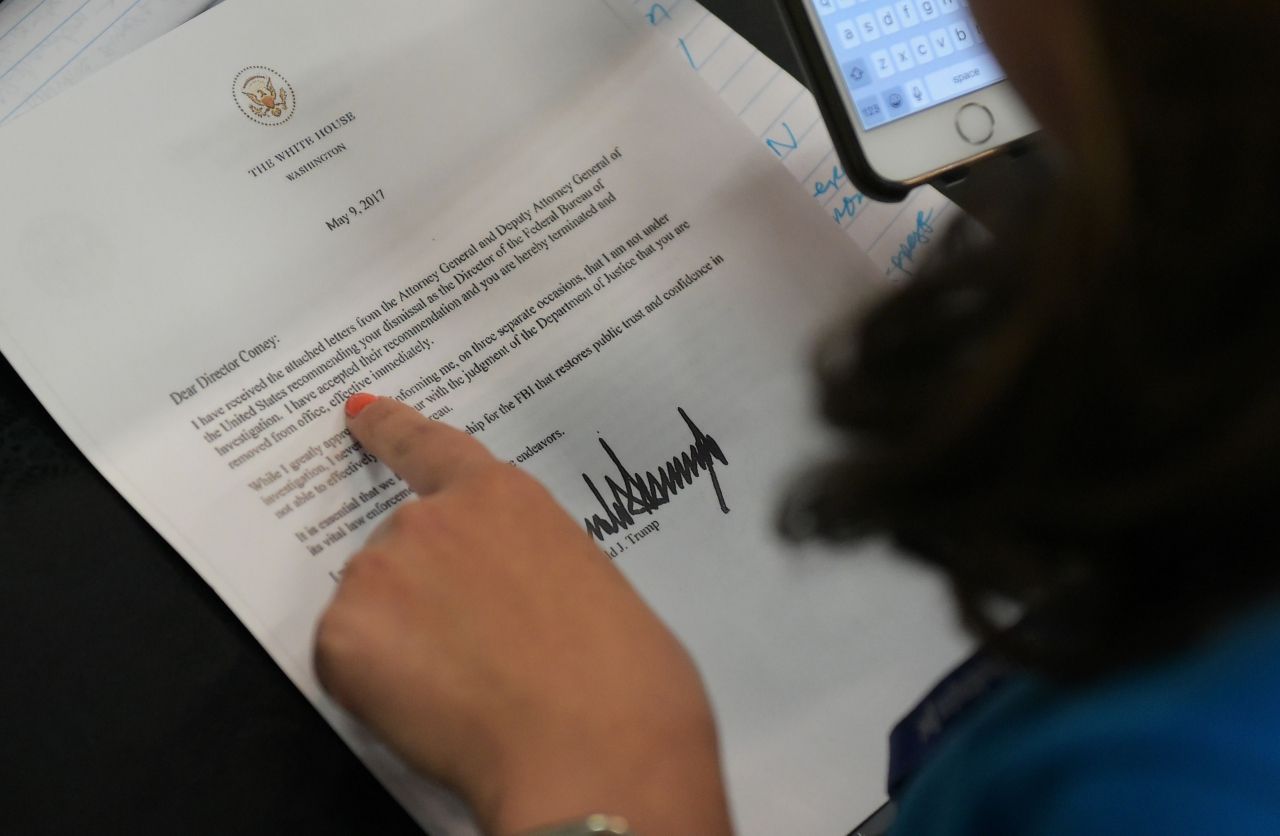 THE WHITE HOUSE
WASHINGTON
May 9, 2017
Dear Director Comey:
I have received the attached letters from the Attorney General and Deputy Attorney General of
the United States recommending your dismissal as the Director of the Federal Bureau of
Investigation. I have accepted their recommendation and you are hereby terminated and
removed from office, effective immediately.
While I greatly informing me, on three separate occasions, that I am not under
investigation, I with the judgment of the Department of Justice that you are
not able to effectively
It is essential that we for the FBI that restores public trust and confidence in
its vital law
I endeavors.
J. Trump
a s d f g
z x c v b
123 space
N